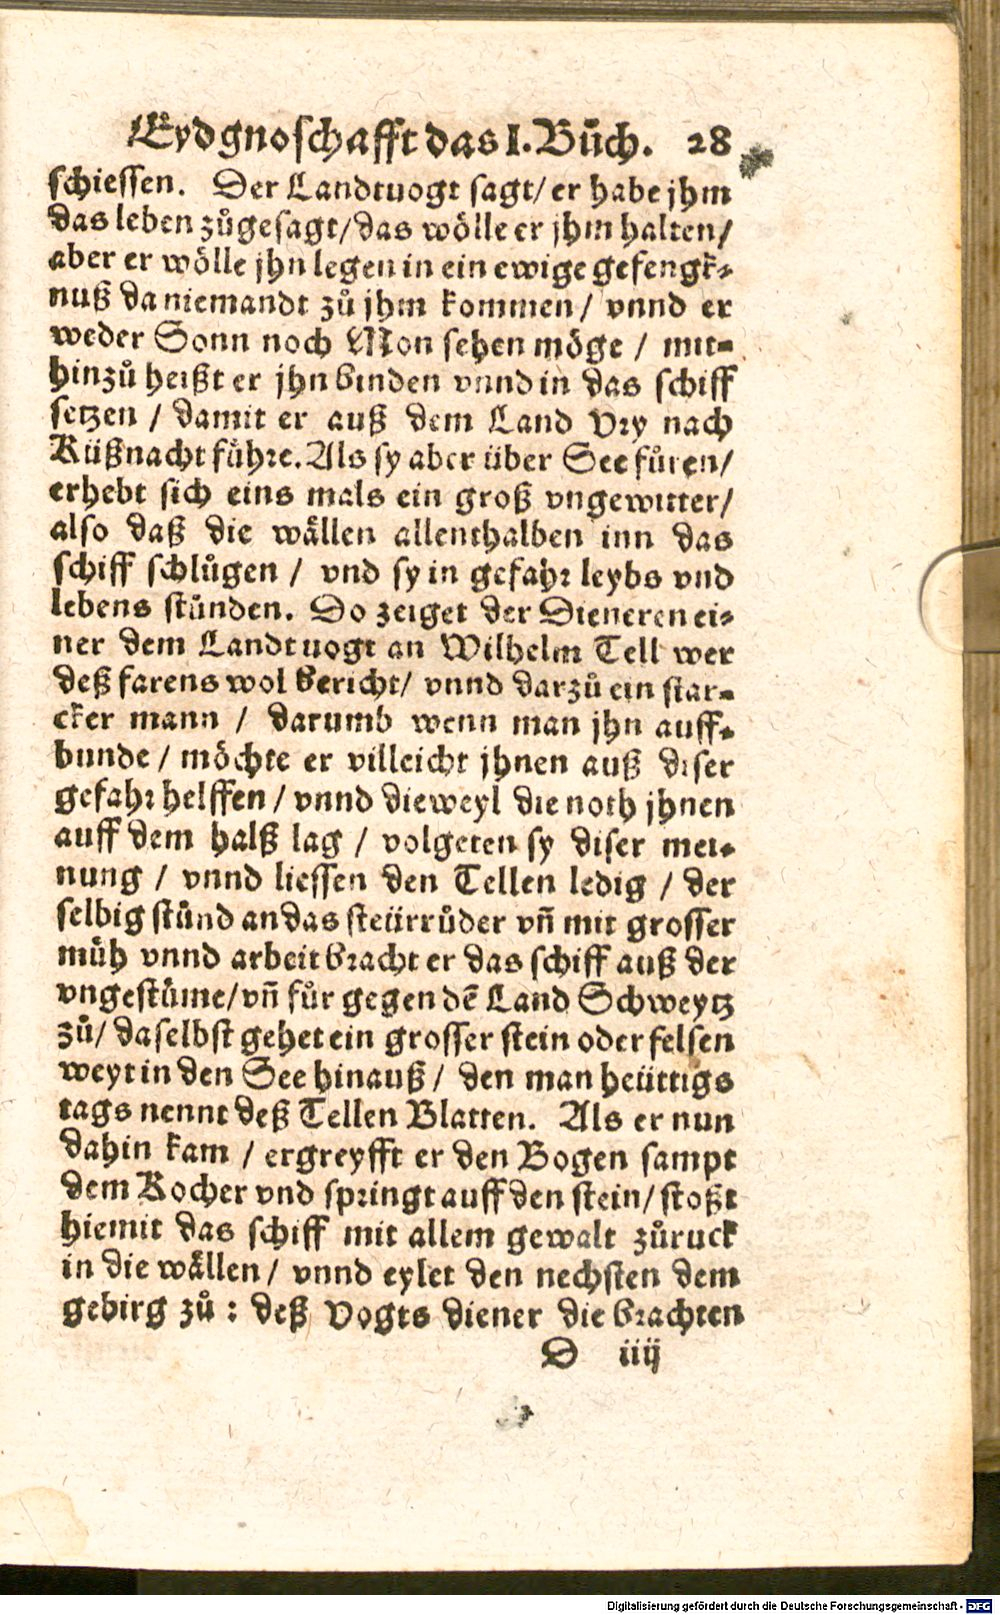 Eydgnoschafft das I. Bůch. 28
schiessen. Der Landtuogt sagt/ er habe jhm
das leben zůgesagt/ das wölle er jhm halten/
aber er wölle jhn legen in ein ewige gefengk-
nuß da niemandt zů jhm kommen/ vnnd er
weder Sonn noch Mon sehen möge/ mit-
hinzů heißt er jhn binden vnnd in das schiff
setzen/ damit er auß dem Land Vry nach
Küßnacht führe. Als sy aber über See fůren/
erhebt sich eins mals ein groß vngewitter/
also daß die wällen allenthalben inn das
schiff schlůgen/ vnd sy in gefahr leybs vnd
lebens stůnden. Do zeiget der Dieneren ei-
ner dem Landtuogt an Wilhelm Tell wer
deß farens wol bericht/ vnnd darzů ein star-
cker mann/ darumb wenn man jhn auff-
bunde/ möchte er villeicht jhnen auß diser
gefahr helffen/ vnnd dieweyl die noth jhnen
auff dem halß lag/ volgeten sy diser mei-
nung/ vnnd liessen den Tellen ledig/ der
selbig stůnd an das steürrůder vñ mit grosser
müh vnnd arbeit bracht er das schiff auß der
vngestüme/ vñ fůr gegen dē Land Schweytz
zů/ daselbst gehet ein grosser stein oder felsen
weyt in den See hinauß/ den man heüttigs
tags nennt deß Tellen Blatten. Als er nun
dahin kam/ ergreyfft er den Bogen sampt
dem Kocher vnd springt auff den stein/ stoßt
hiemit das schiff mit allem gewalt zůruck
in die wällen/ vnnd eylet den nechsten dem
gebirg zů: deß Vogts diener die brachten
D iiij
Digitalisierung gefördert durch die Deutsche Forschungsgemeinschaft - DFG